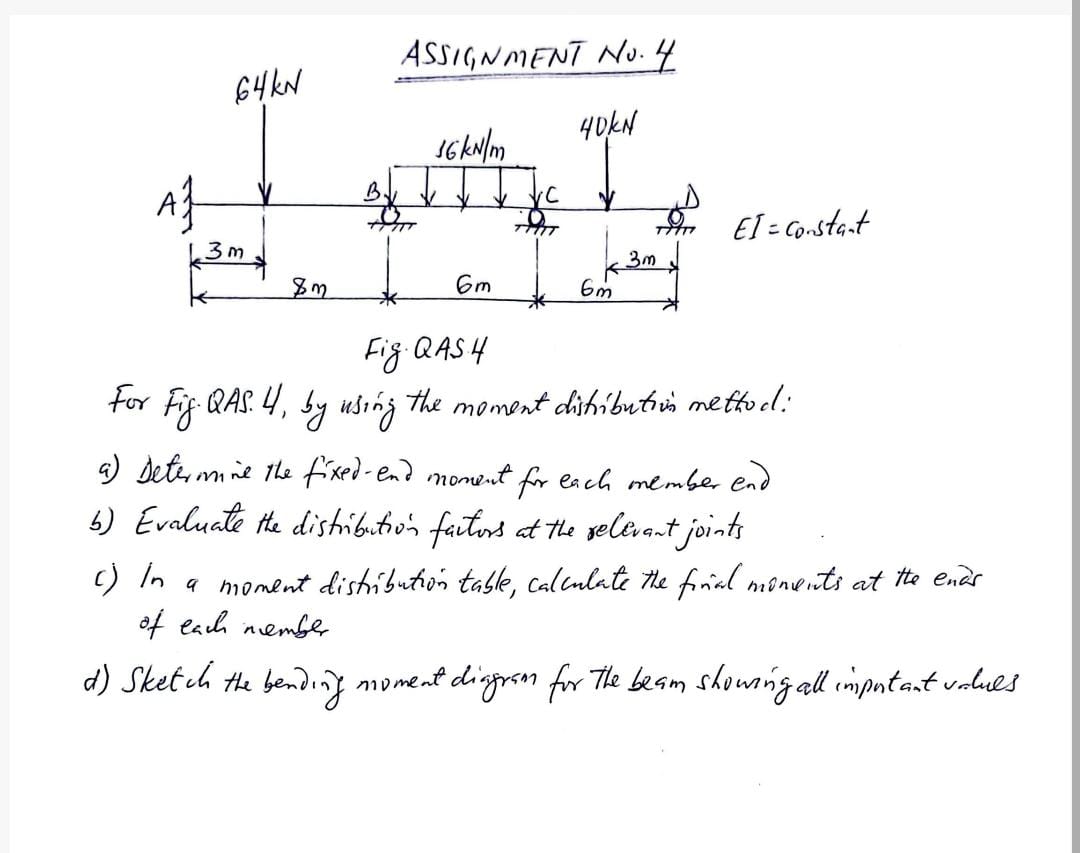 ASSIGNMENT No. 4
64kN
40kN
16kN/m
A
B
C
D
EI = Constant
3m
3m
8m
6m
6m
Fig. QAS4
For Fig. QAS. 4, by using the moment distribution method:
a) Determine the fixed-end moment for each member end
b) Evaluate the distribution factors at the relevant joints
c) In a moment distribution table, calculate the final moments at the ends
of each member
d) Sketch the bending moment diagram for the beam showing all important values